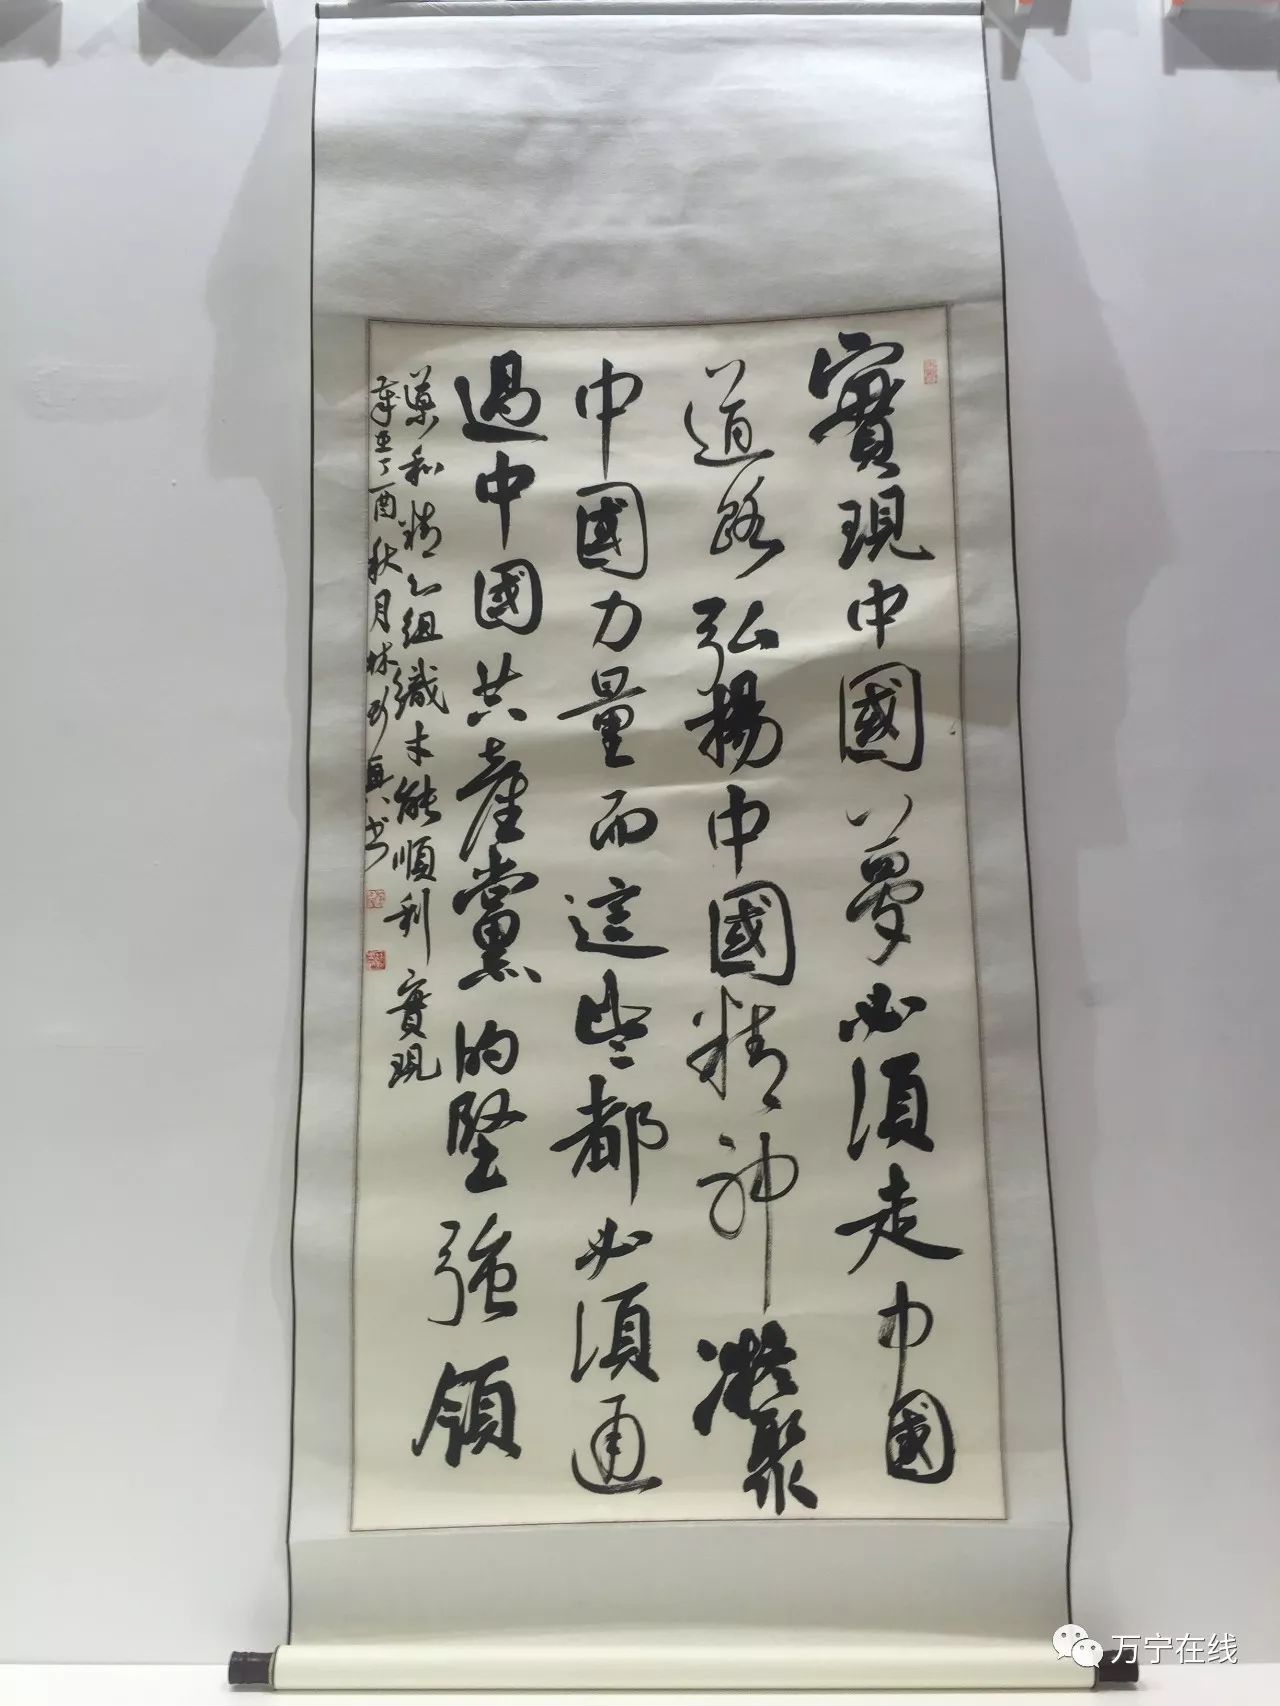 實現中國夢必須走中國
道路弘揚中國精神凝聚
中國力量而這些都必須通
過中國共產黨的堅強領
導和精心組織才能順利實現
歲至丁酉秋月林 書
万宁在线